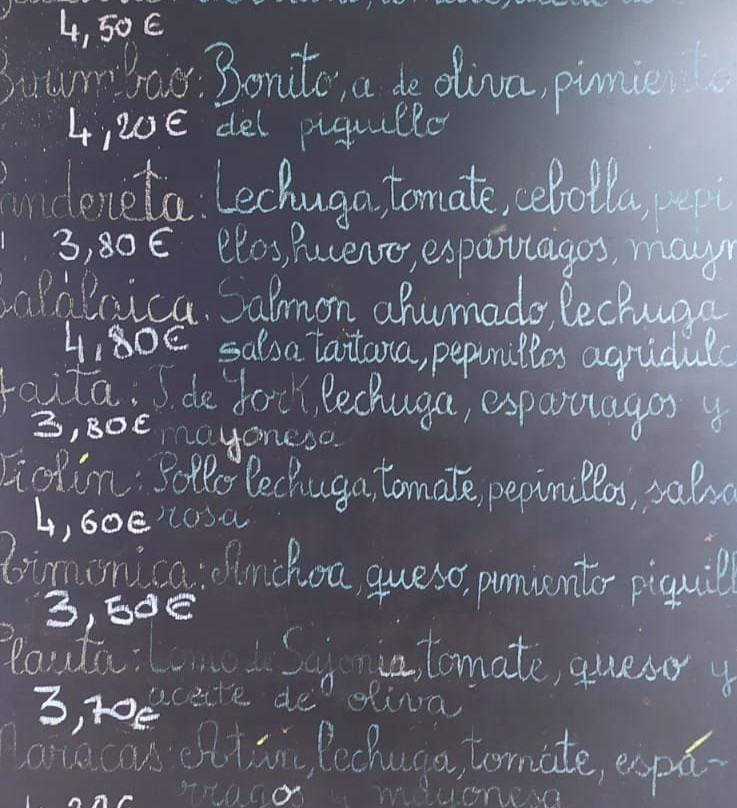 4,50€
Bonito, a. de oliva, pimiento
4,20€ del piquillo
Lechuga, tomate, cebolla, pepi
3,80€ llos, huevo, espárragos, mayn
Salmon ahumado, lechuga
4,80€ salsa tartara, pepinillos agridulc
Gaita: J. de York, lechuga, esparragos y
3,80€ mayonesa
Violín: Pollo lechuga, tomate, pepinillos, salsa
4,60€ rosa
Armonica: Anchoa, queso, pimiento piquill
3,50€
Flauta: Lomo de Sajonia, tomate, queso y
3,70€ aceite de oliva
Maracas: Atún, lechuga, tomate, espá-
rragos y mayonesa